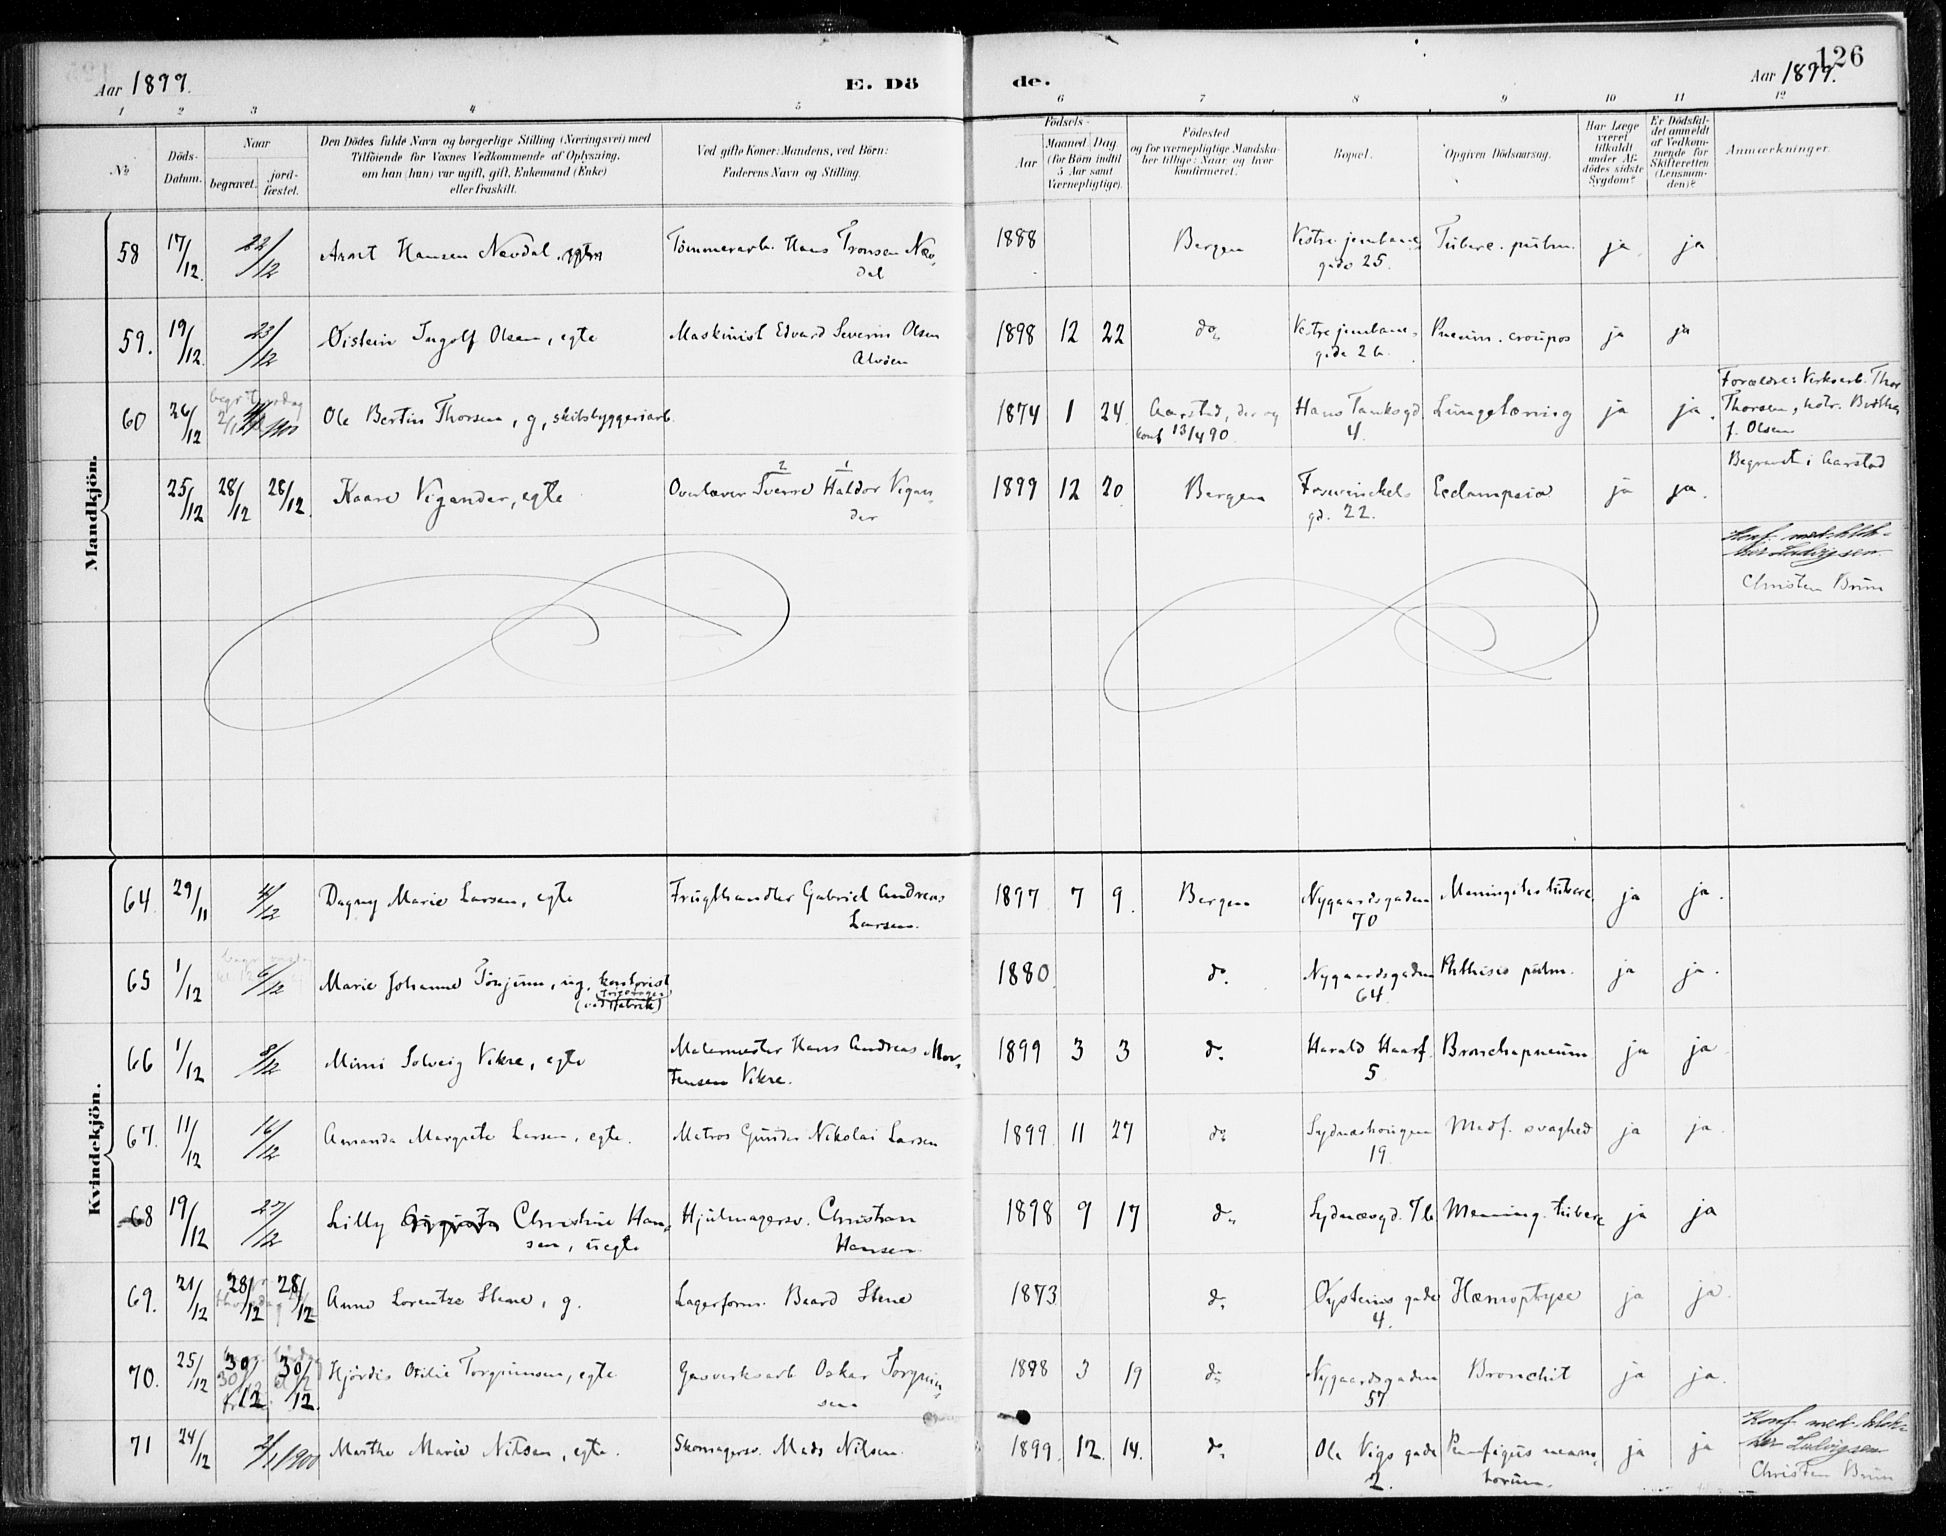 Aar 1899.
E. Dö
de.
Aar 1899.
126
1 2 3 4 5 6 7 8 9 10 11 12
No
Döds-Datum.
Naar
begravet.
jord-fæstet.
Den Dödes fulde Navn og borgerlige Stilling (Næringsvei) med
Tilföiende for Voxnes Vedkommende af Oplysning,
om han (hun) var ugift, gift, Enkemand (Enke)
eller fraskilt.
Ved gifte Koner: Mandens, ved Börn:
Faderens Navn og Stilling.
Födsels-
Aar
Maaned Dag
(for Börn indtil
5 Aar samt
Værnepligtige).
Födested
og for værnepligtige Mandska-
ber tillige: Naar og hvor
konfirmeret.
Bopæl.
Opgiven Dödsaarsag.
Har Læge
været
tilkaldt
under Af-
dödes sidste
Sygdom?
Er Dödsfal-
det anmeldt
af Vedkom-
mende for
Skifteretten
(Lensman-
den)?
Anmærkninger.
Mandkjön.
58 17/12. 22/12 Arnt Hansen Nevdal, Tömmerarb. Hans Tronsen Nev-
dal 1888 Bergen Vestre jernbane-
gade 25. Tuberc. pulm. ja ja
59. 19/12. 23/12 Øistein Ingolf Olsen, egte Maskinist Edvard Severin Olsen
Alvöen 1898 12 22 do Vestre jernbane-
gade 26. Pneum. croupos ja ja
60 26/12 Ole Bertin Thorsen, g, skibsbyggeriarb. 1874 1 24 Aarstad, der og
konf 13/4 90 Hans Tanksgd
4. Lungetæring ja ja. Forældre: Verksarb. Thor
Thorsen, hstr. Berthe
f. Olsen
25/12 28/12 28/12. Kaare Vigander, egte Overlærer Sverre Haldor Vigan-
der 1899 12 20 Bergen Foswinckels
gd. 22. Eclampsia ja ja. Begravet i Aarstad
Konf. med klok-
ker Ludvigsen.
Christen Brun
Kvindekjön.
64. 29/11 4/12 Dagny Marie Larsen, egte Frugthandler Gabriel Andreas
Larsen. 1897 7 9. Bergen Nygaardsgaden
70 Meningitis tuberc. ja ja.
65 1/12 6/12 Marie Johanne Tönjum, ug. kontorist
1880 do. Nygaardsgaden
64. Phthisis pulm. ja ja.
66 1/12 8/12 Mimi Solveig Vikre, egte Malermester Hans Andreas Mor-
tensen Vikre. 1899 3 3 do. Harald Haarf.
5 Bronchopneum ja ja
67. 11/12 16/12 Amanda Margrete Larsen, egte. Matros Gunder Nikolai Larsen 1899. 11 27 do Sydneshougen
19 Medf. svaghed ja ja.
68 19/12 27/12 Lilly Christine Han-
sen, uegte Hjulmagersv. Christian
Hansen 1898 9 17 do Sydnæsgd. 7b Mening. tuberc ja ja
69. 21/12 28/12 28/12 Anne Lorentze Stene, g. Lagerform. Baard Stene 1873 do. Øysteins gade
4. Hæmoptyse ja ja.
70. 25/12 30/12 30/12. Hjördis Otilie Torgrimsen, egte Gasverksarb Oskar Torgrim-
sen 1898 3 19 do Nygaardsgaden
57 Bronchit ja ja.
71 24/12 2/1 1900 Marthe Marie Nilsen, egte. Skomagersv. Mads Nilsen. 1899. 12. 14. do. Ole Vigs gade
2. Pemfigus neona-
torum. ja ja
Konf. med klok-
ker Ludvigsen
Christen Brun